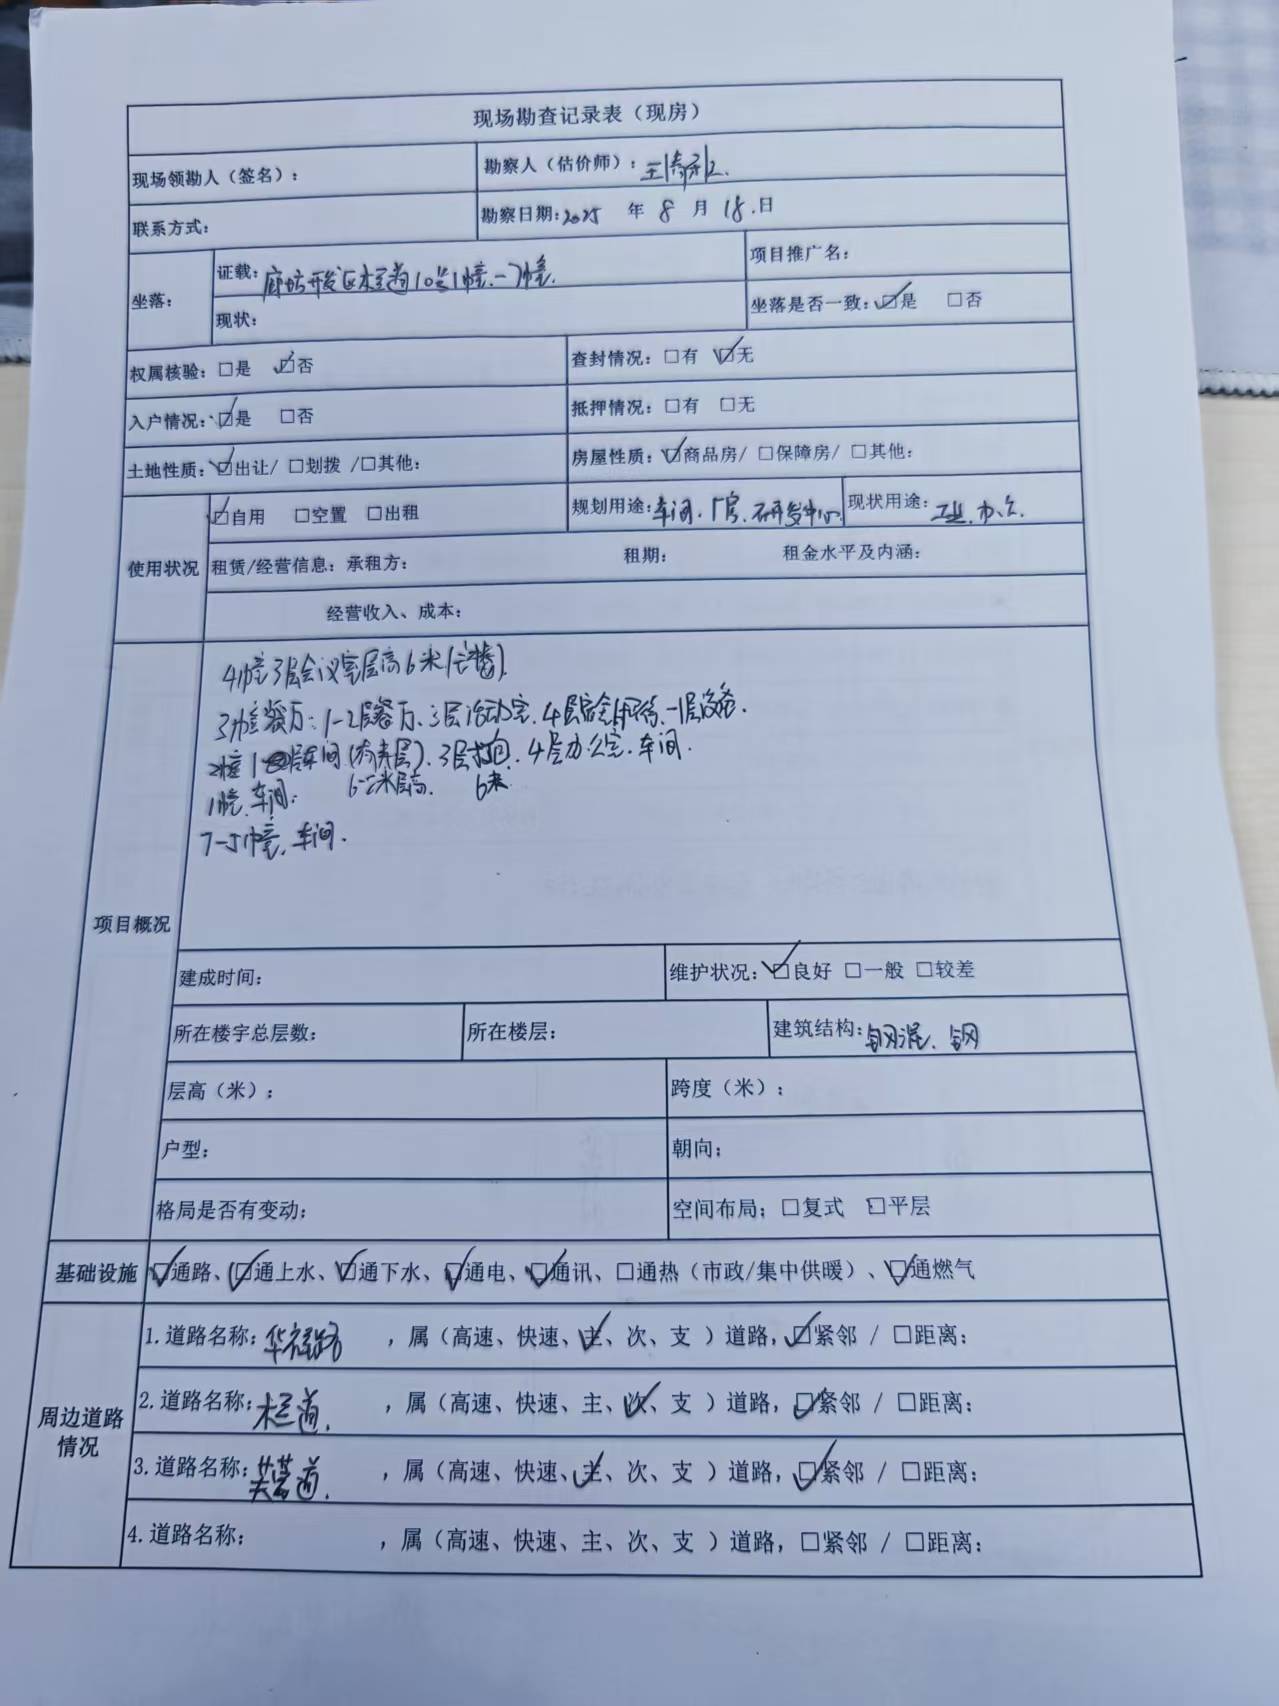 现场勘查记录表（现房）
现场领勘人（签名）：
勘察人（估价师）：王
联系方式：
勘察日期：2025 年 8 月 18.日
坐落：
证载：廊坊开发区木兰道10号1幢.-7幢.
项目推广名：
现状：
坐落是否一致：☑是 □否
权属核验：□是 ☑否
查封情况：□有 ☑无
入户情况：☑是 □否
抵押情况：□有 □无
土地性质：☑出让/ □划拨 /□其他：
房屋性质：☑商品房/ □保障房/ □其他：
使用状况
☑自用 □空置 □出租
规划用途：车间.厂房.研发中心
现状用途：工业.办公.
租赁/经营信息：承租方： 租期： 租金水平及内涵：
经营收入、成本：
项目概况
4幢3层会议室层高6米
3幢餐厅：1-2层餐厅.三层活动室.4层宿舍 -1层设备.
2幢 1 层车间(有夹层).3层 4层办公室.车间.
1幢.车间. 6 米层高. 6米
7-5幢.车间.
建成时间：
维护状况：☑良好 □一般 □较差
所在楼宇总层数：
所在楼层：
建筑结构：钢混、钢
层高（米）：
跨度（米）：
户型：
朝向：
格局是否有变动：
空间布局：□复式 □平层
基础设施
☑通路、☑通上水、☑通下水、☑通电、☑通讯、□通热（市政/集中供暖）、☑通燃气
周边道路情况
1.道路名称：华祥路 ，属（高速、快速、主、次、支 ）道路，☑紧邻 / □距离：
2.道路名称：木兰道. ，属（高速、快速、主、次、支 ）道路，☑紧邻 / □距离：
3.道路名称：芙蓉道. ，属（高速、快速、主、次、支 ）道路，☑紧邻 / □距离：
4.道路名称： ，属（高速、快速、主、次、支 ）道路，□紧邻 / □距离：